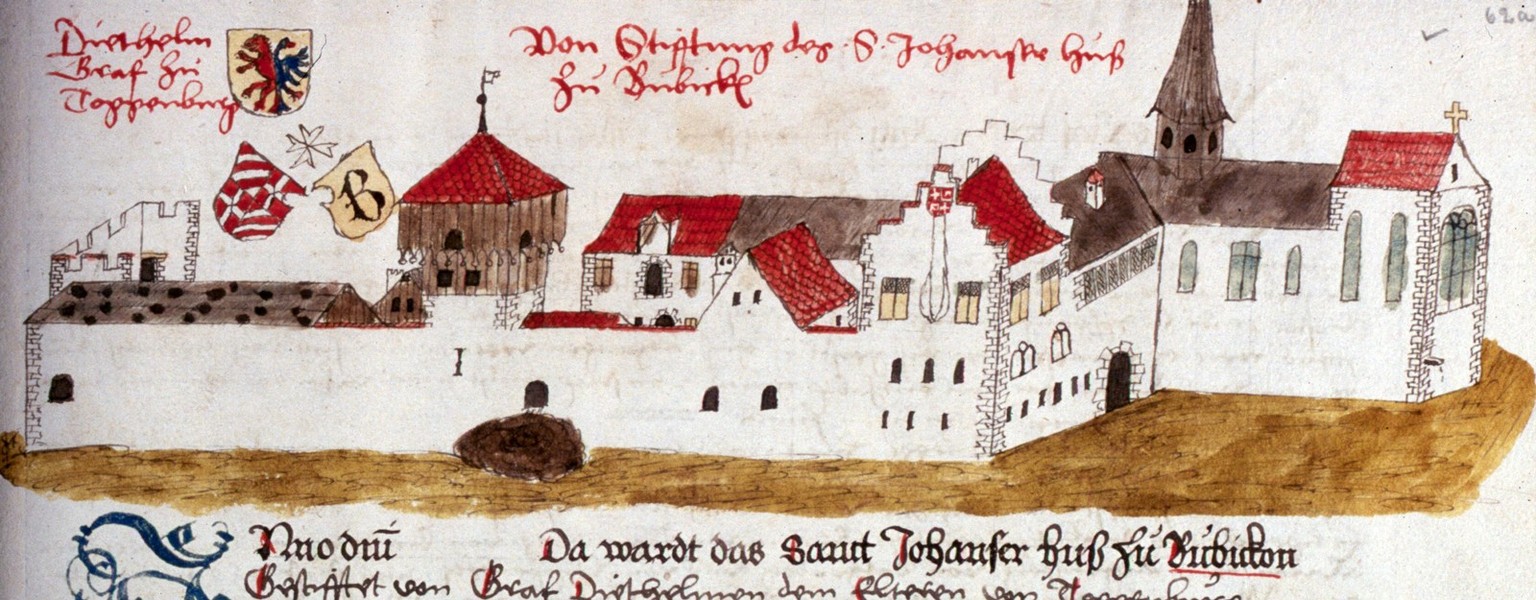 Diethelm
Graf zu
Toggenburg
Von Stifftung des S. Johanser huß
zu Bubickh
62a
B
I
Anno dni Da wardt das Sanct Johanser huß zu Bubickon
Gestifftet von Graf Diethelmen dem Elteren von Toggenburg